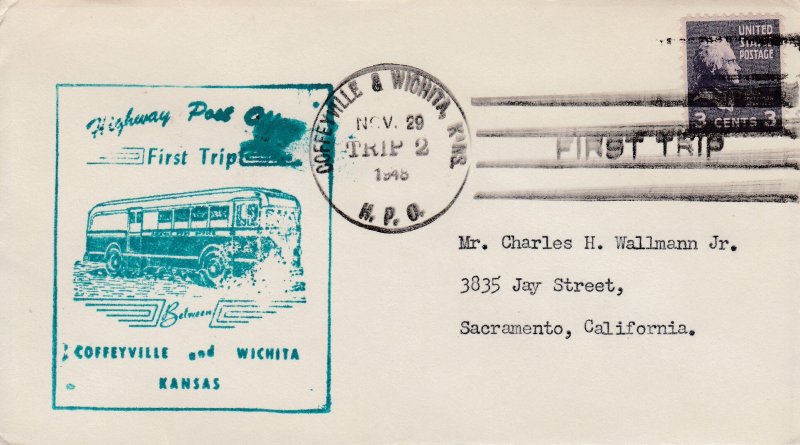 Highway Post
First Trip
Between
COFFEYVILLE and WICHITA
KANSAS
COFFEYVILLE & WICHITA, KANS.
NOV. 29
TRIP 2
1948
H. P. O.
FIRST TRIP
UNITED
STATES
POSTAGE
3 CENTS 3
Mr. Charles H. Wallmann Jr.
3835 Jay Street,
Sacramento, California.